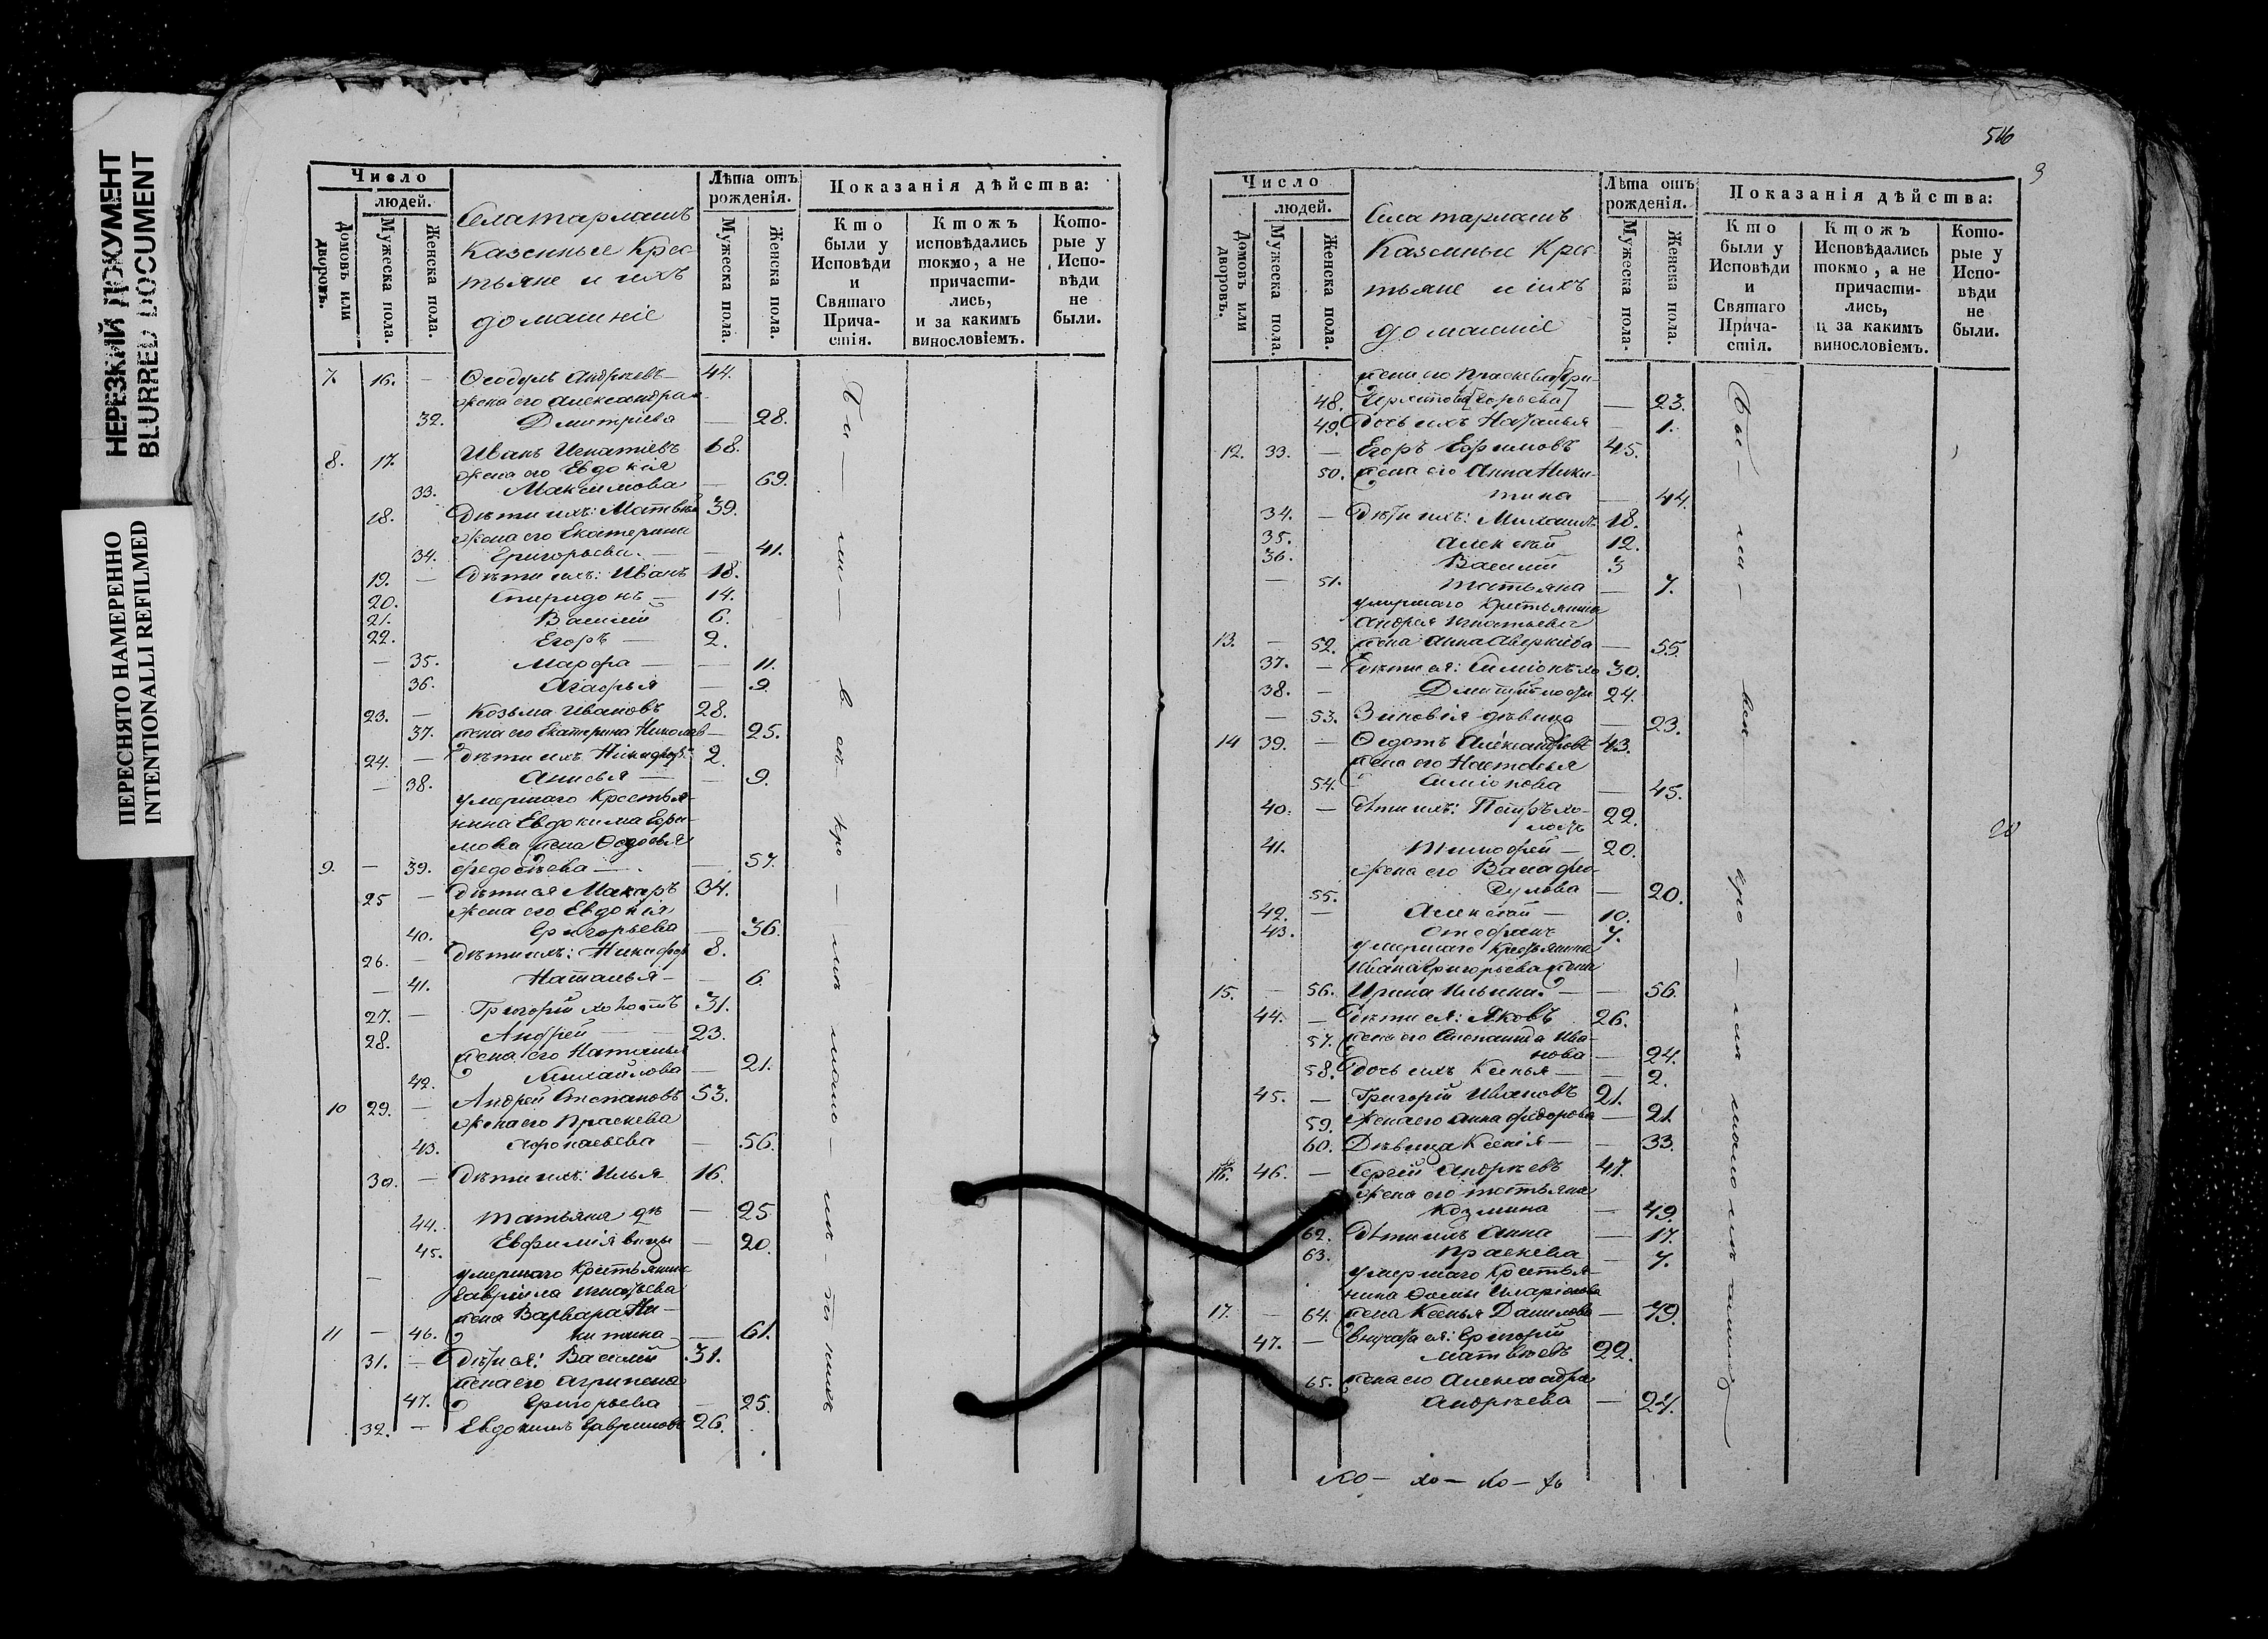 НЕРЕЗКИЙ ДОКУМЕНТ
BLURRED DOCUMENT
ПЕРЕСНЯТО НАМЕРЕННО
INTENTIONALLI REFILMED
Число
людей.
Домовъ или дворовъ.
Мужеска пола.
Женска пола.
Села тармашъ
Казенные Крес-
тьяне и ихъ
домашніе
Лѣта отъ рожденія.
Мужеска пола.
Женска пола.
Показанія дѣйства:
Кто были у Исповѣди и Святаго Прича-стія.
Ктожъ исповѣдались токмо, а не причасти-лись, и за какимъ винословіемъ.
Кото-рые у Испо-вѣди не были.
7. 16. — Ѳеодулъ Андреевъ— 44.
жена его Александра
32. Дмитріева — 28.
8. 17. Иванъ Игнатіевъ 68.
жена его Евдокія
33. Максимова — 69.
18. Дѣти ихъ: Матвѣй 39.
жена его Екатерина
34. Григорьева — — 41.
19. — Дѣти ихъ: Иванъ 18.
20. Спиридонъ — 14.
21. Василій 6.
22. Егоръ — 2.
— 35. Марѳа — — 11.
36. Агафья — 9.
23. — Козьма Ивановъ 28.
37. жена его Екатерина Николаев— 25.
24. — Дѣти ихъ Никифоръ 2.
— 38. Анисья — — 9.
умершаго Крестья-
нина Евдокима Ефи-
мова жена Ѳедосья
9. — 39. Федосѣева — — 57.
25 — Дѣти ея Макаръ 34.
жена его Евдокія
40. Григорьева — 36.
26. — Дѣти ихъ: Никифоръ 8.
— 41. Наталья — — 6.
27. — Григорій холостъ 31.
28. Андрей — 23.
жена его Наталья
42. Михайлова — 21.
10 29. — Андрей Степановъ 53.
жена его Праскева
43. Афонасьева — 56.
30. — Дѣти ихъ: Илья 16.
44. Татьяна дѣ — 25
45. Евфимія вицы — 20.
— умершаго Крестьянина
Гаврiила Игнатьева
жена Варвара Ни-
11 — 46. китина — 61.
31. — Дѣти ея: Василій 31.
жена его Агрипена
47. Григорьева — 25.
32. — Евдокимъ Гавриловъ 26.
Бы — ли — в
516
9
Число
людей.
Домовъ или дворовъ.
Мужеска пола.
Женска пола.
Села тармашъ
Казенные Крес-
тьяне и ихъ
домашніе
Лѣта отъ рожденія.
Мужеска пола.
Женска пола.
Показанія дѣйства:
Кто были у Исповѣди и Святаго Прича-стія.
Ктожъ Исповѣдались токмо, а не причасти-лись, и за какимъ винословіемъ.
Кото-рые у Испо-вѣди не были.
жена его Праскева
48. [Егорьева] — 23.
49. Дочь ихъ Наталья — 1.
12. 33. — Егоръ Ефимовъ 45.
50. жена его Анна Ники-
тина — 44.
34. — Дѣти ихъ: Михаилъ 18.
35. Алексѣй 12.
36. Василій 3
— 51. Татьяна — 7.
умершаго Крестьянина
Андрея Игнатьева
13. — 52. жена Анна Аверкіева — 55.
37. — Дѣти ея: Симіонъ хо 30.
38. — Дмитрій лосты 24.
— 53. Зиновія дѣвица — 23.
14 39. — Ѳедотъ Александровъ 43.
жена его Настасья
54. Симіонова — 45.
40. — Дѣти ихъ: Петръ хо-
лостъ 22.
41. Тимофей — 20.
жена его Васса Фео-
55. дулова — 20.
42. — Алексѣй — 10.
43. Стефанъ 7.
умершаго Крестьянина
Ивана Григорьева жена
15. — 56. Ирина Ильина — — 56.
44. — Дѣти ея: Яковъ 26.
57. жена его Степанида Ива-
нова — 24.
58. Дочь ихъ Ксенья — — 2.
45. — Григорій Ивановъ 21.
59. жена его Анна Федорова — 21
60. Дѣвица Ксенія — — 33.
16. 46. — Сергѣй Андреевъ 47.
жена его Татьяна
Козмина — 49.
62. Дѣти ихъ Анна — 17.
63. Праскева — 7.
умершаго Крестья-
нина Ѳомы Иларіонова
17. — 64. жена Ксенья Данилова — 79.
47. — внучата ея: Григорій
Матвѣевъ 22.
65. жена его Александра
Андреева — 24.
Бы — ли — все
20